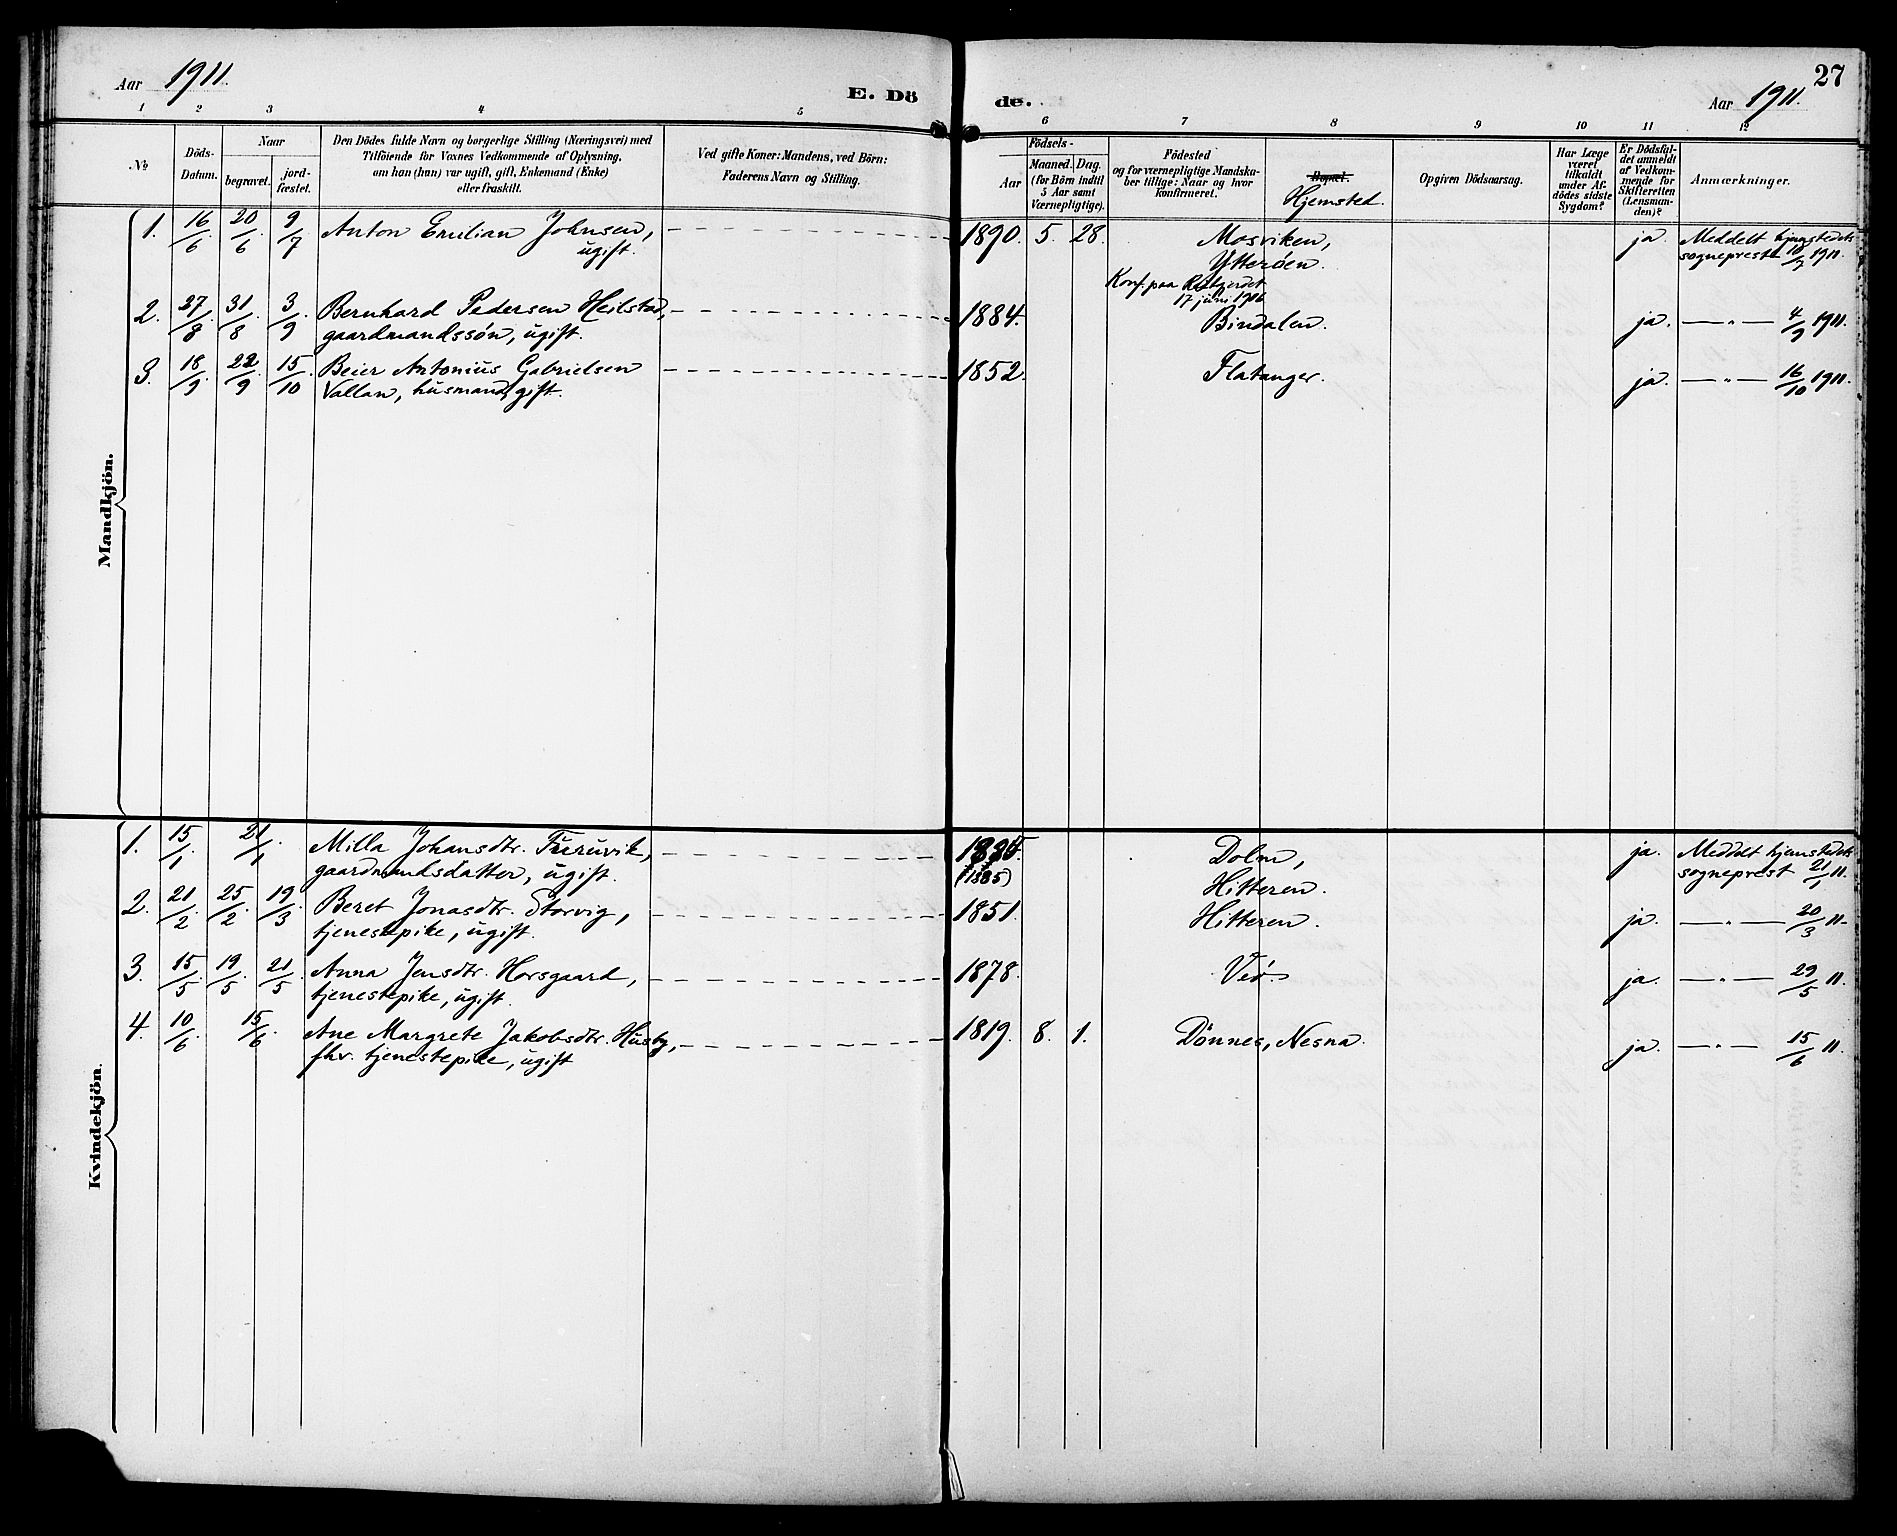 Aar 1911.
E. Dö
de.
Aar 1911.
27
1 2 3 4 5 6 7 8 9 10 11 12
No
Döds-
Datum.
Naar
begravet.
jord-
fæstet.
Den Dödes fulde Navn og borgerlige Stilling (Næringsvei) med
Tilföiende for Voxnes Vedkommende af Oplysning,
om han (hun) var ugift, gift, Enkemand (Enke)
eller fraskilt.
Ved gifte Koner: Mandens, ved Börn:
Faderens Navn og Stilling.
Födsels-
Aar
Maaned. Dag.
(for Börn indtil
5 Aar samt
Værnepligtige).
Födested
og for værnepligtige Mandska-
ber tillige: Naar og hvor
konfirmeret.
Bopæl.
Hjemsted.
Opgiven Dödsaarsag.
Har Læge
været
tilkaldt
under Af-
dödes sidste
Sygdom?
Er Dödsful-
det anmeldt
af Vedkom-
mende for
Skifteretten
(Lensman-
den)?
Anmærkninger.
Mandkjön.
1. 16/6. 20/6. 9/7 Anton Emilian Johnsen, 1890. 5. 28. Mosviken, ja. Meddelt hjemstedets
ugift. Ytteröen. sogneprest 10/7 1911.
Konf. paa
17 juni 1906
2. 27/8. 31/8. 3/9. Bernhard Pedersen Heilstad, 1884. Bindalen. ja. — " — 4/9 1911.
gaardmandssön, ugift.
3. 18/9. 22/9. 15/10. Beier Antonius Gabrielsen 1852. Flatanger. ja. — " — 16/10 1911.
Vallan, husmand, gift.
Kvindekjön.
1. 15/1. 21/1. Milla Johansdtr. Furuvik, 1885. Dolm, ja. Meddelt hjemstedets
gaardmandsdatter, ugift. (1885) Hitteren. sogneprest 21/1 11.
2. 21/2. 25/2. 19/3 Beret Jonasdtr. Storvig, 1851. Hitteren. ja. — " — 20/3 11.
tjenestepike, ugift.
3. 15/5. 19/5. 21/5. Anna Jensdtr. Horsgaard, 1878. Veö. ja. — " — 29/5 11.
tjenestepike, ugift.
4. 10/6. 15/6. Ane Margrete Jakobsdtr. Husby, 1819. 8. 1. Dönnes, Nesna. ja. — " — 15/6 11.
fhv. tjenestepike, ugift